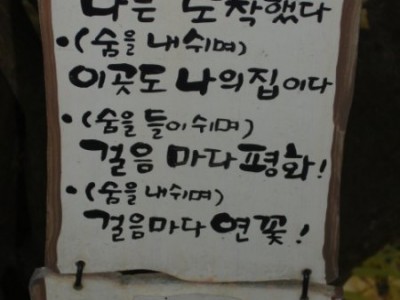 나는 도착했다
·(숨을 내쉬며)
이곳도 나의 집이다
·(숨을 들이쉬며)
걸음마다 평화!
·(숨을 내쉬며)
걸음마다 연꽃!